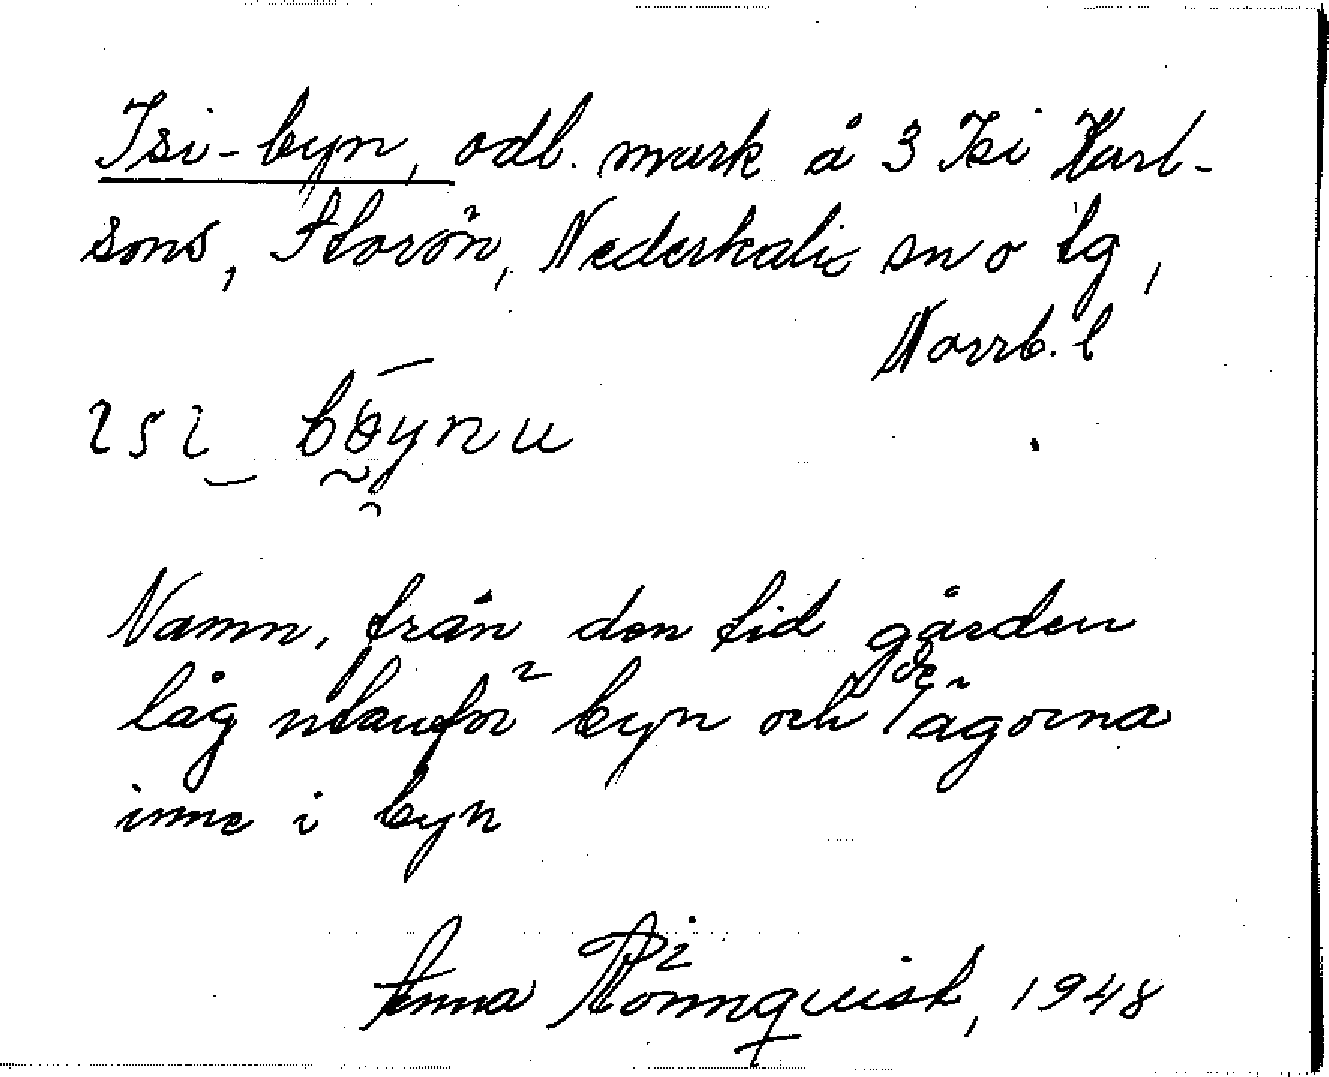 Isi-byn, odl. mark å 3 Isi Karl-
sons, Storön, Nederkalix sn o tg,
Norrb. l
ɩsɩ‿ bøynu
Namn, från den tid gården
låg utanför byn och de ägorna
inne i byn
Anna Rönnquist, 1948